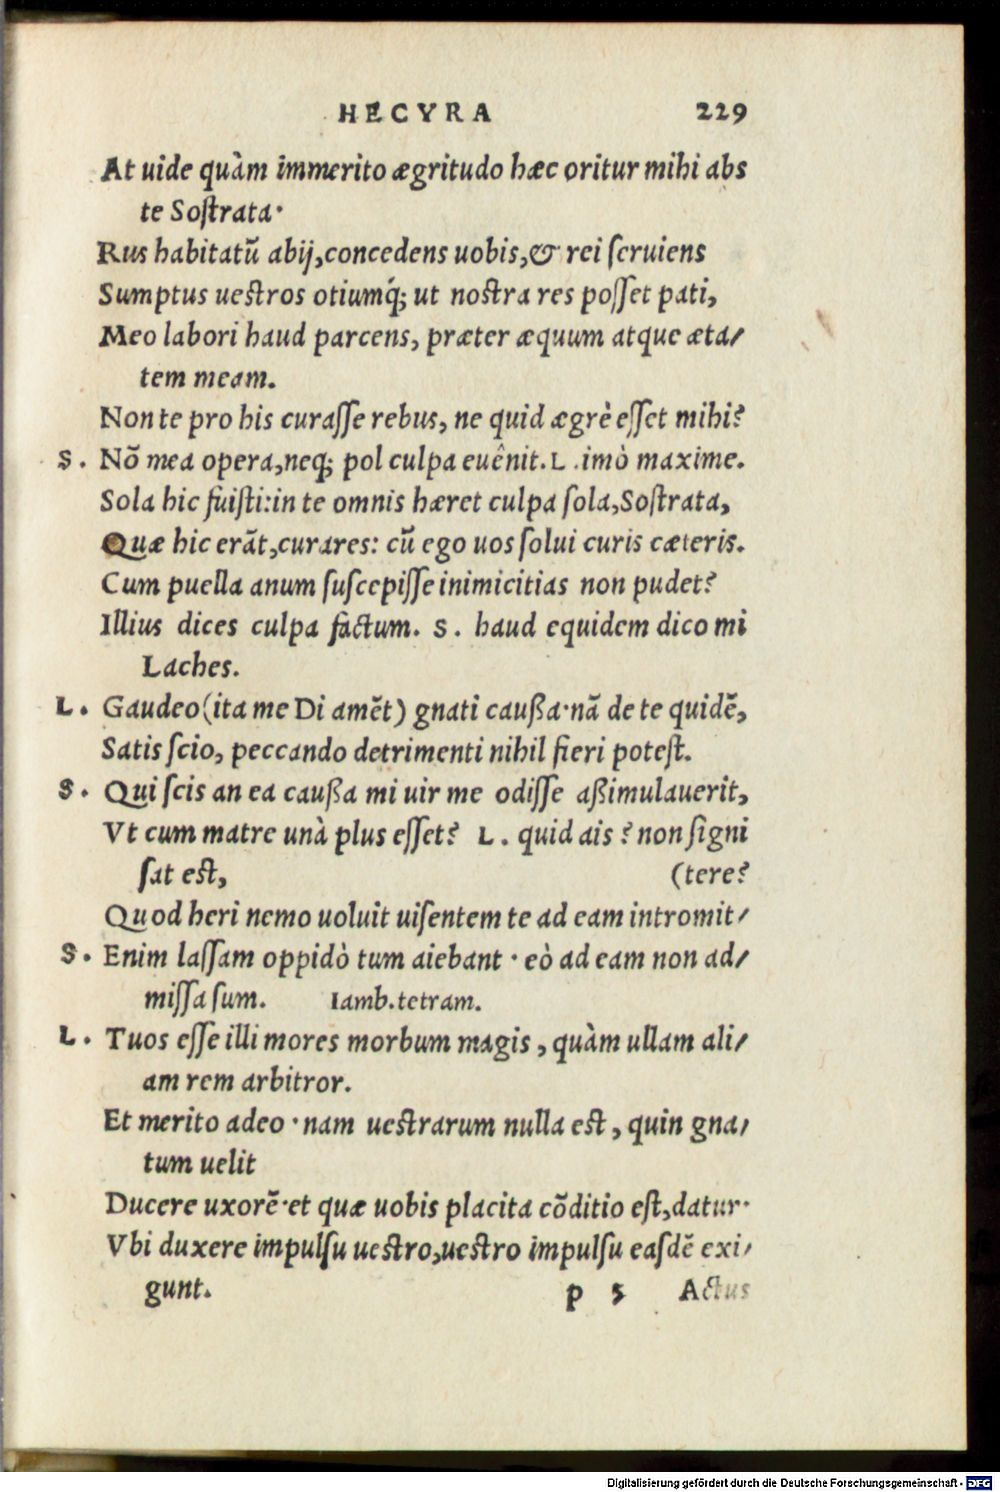 HECYRA 229
At uide quàm immerito ægritudo hæc oritur mihi abs
te Sostrata·
Rus habitatũ abij,concedens uobis,& rei seruiens
Sumptus uestros otiumq́; ut nostra res posset pati,
Meo labori haud parcens, præter æquum atque æta/
tem meam.
Non te pro his curasse rebus, ne quid ægrè esset mihi?
S. Nõ mea opera,neq; pol culpa euênit. L. imò maxime.
Sola hic fuisti:in te omnis hæret culpa sola,Sostrata,
Quæ hic erãt,curares: cũ ego uos solui curis cæteris.
Cum puella anum suscepisse inimicitias non pudet?
Illius dices culpa factum. S. haud equidem dico mi
Laches.
L. Gaudeo(ita me Di amẽt) gnati caußa·nã de te quidẽ,
Satis scio, peccando detrimenti nihil fieri potest.
S. Qui scis an ea caußa mi uir me odisse aßimulauerit,
Vt cum matre unà plus esset? L. quid ais? non signi
sat est, (tere?
Quod heri nemo uoluit uisentem te ad eam intromit/
S. Enim lassam oppidò tum aiebant · eò ad eam non ad/
missa sum. Iamb.tetram.
L. Tuos esse illi mores morbum magis, quàm ullam ali/
am rem arbitror.
Et merito adeo ·nam uestrarum nulla est, quin gna/
tum uelit
Ducere uxorẽ·et quæ uobis placita cõditio est,datur·
Vbi duxere impulsu uestro,uestro impulsu easdẽ exi/
gunt. p 5 Actus
Digitalisierung gefördert durch die Deutsche Forschungsgemeinschaft - DFG